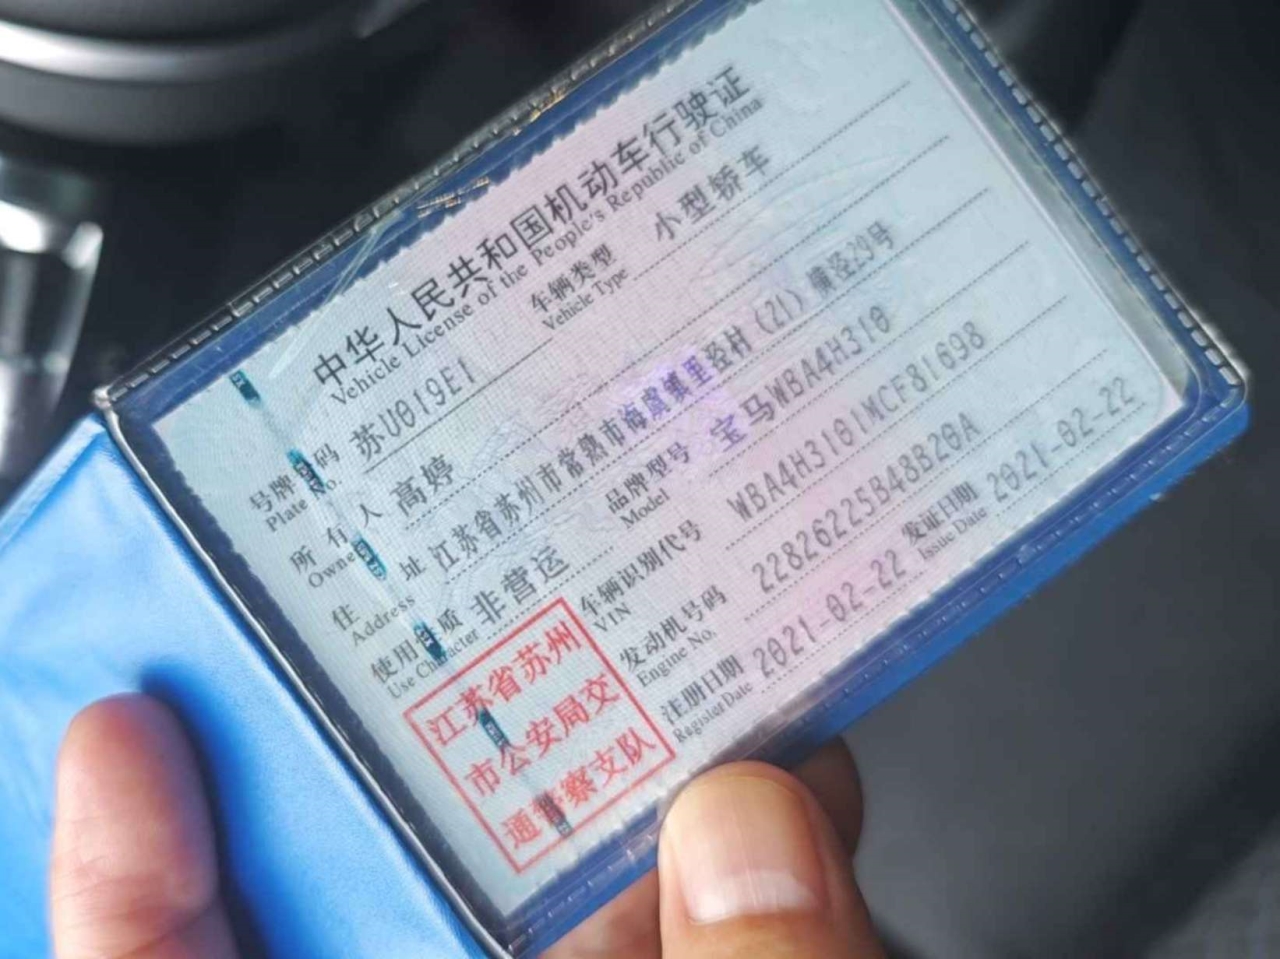 中华人民共和国机动车行驶证
Vehicle License of the People's Republic of China
号牌号码 苏U019E1 车辆类型 小型轿车
Plate No. Vehicle Type
所有人 高婷
Owner
住址 江苏省苏州市常熟市海虞镇里泾村(21)横泾29号
Address
使用性质 非营运 品牌型号 宝马WBA4H310
Use Character Model
车辆识别代号 WBA4H3101MCF81698
VIN
发动机号码 22826225B48B20A
Engine No.
注册日期 2021-02-22 发证日期 2021-02-22
Register Date Issue Date
江苏省苏州
市公安局交
通警察支队